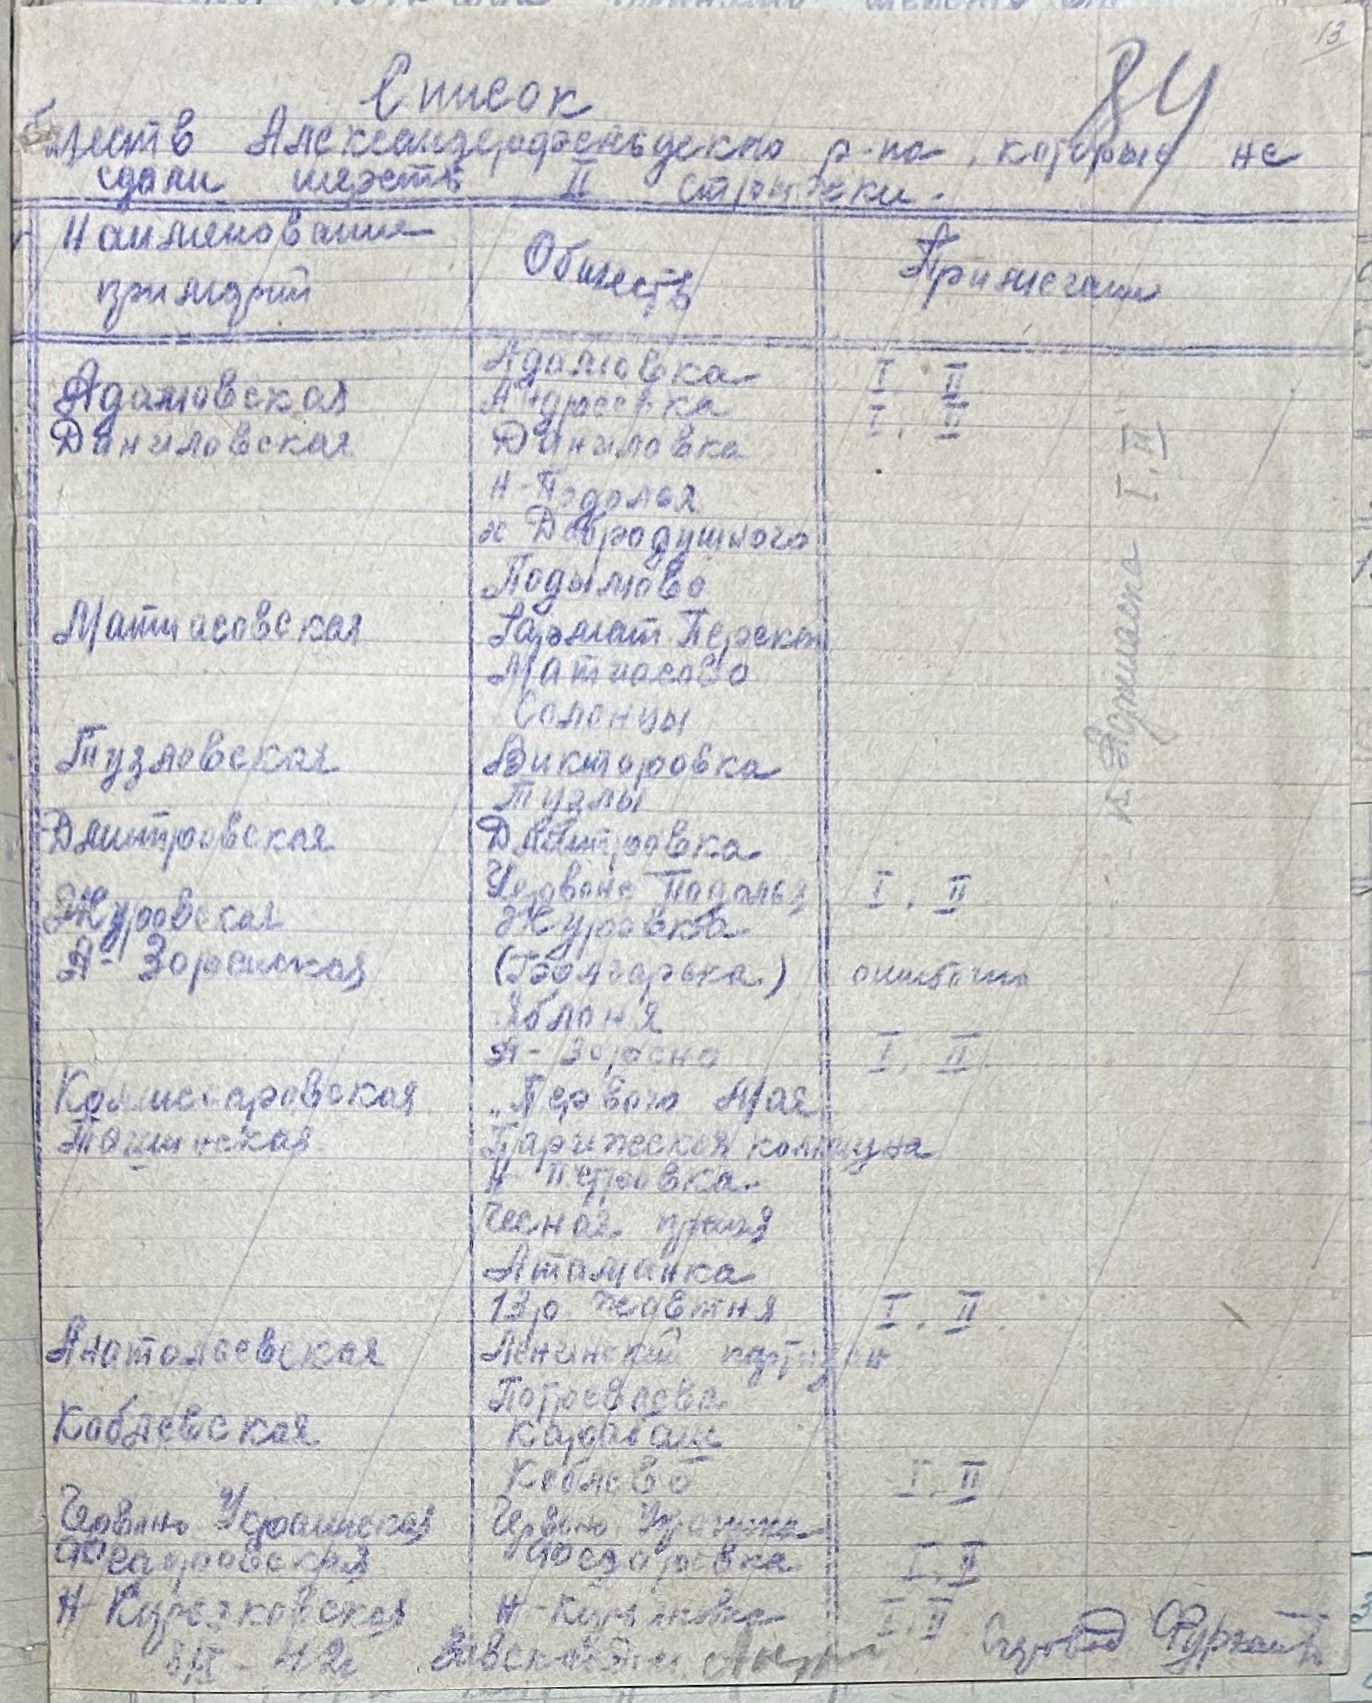 13
84
Список
обществ Александерфельдского р-на, которые не
сдали шерсть II стрыжки.
Наименование примарий Обществ Примечание
Адамовская Адамовка I, II
Андреевка I, II
Даниловская Даниловка
Н-Подолья
х Добродушного
Подымово
Матиасовская Гармат. Перекоп
Матиасово
Солонцы
Тузловская Викторовка
Тузлы
Дмитровская Дмитровка
Червоне Подолья I, II
Журовская Журовка
А- Зоренская (Болгарька) ошибочно
Яблоня
А- Зорено I, II
Комиссаровская "Первого Мая
Ташинская Парижская коммуна
Н- Петровка
Чесная прыця
Атаманка
13р. Жовтня I, II.
Анатольевская Ленинский партизан
Кобл​евская Карабаш
Коблево I, II
Червоно Украинская Червоно Украинка
Федоровская Федоровка I, II
Н-Курсяковская I, II
к. Аджиаска I, II